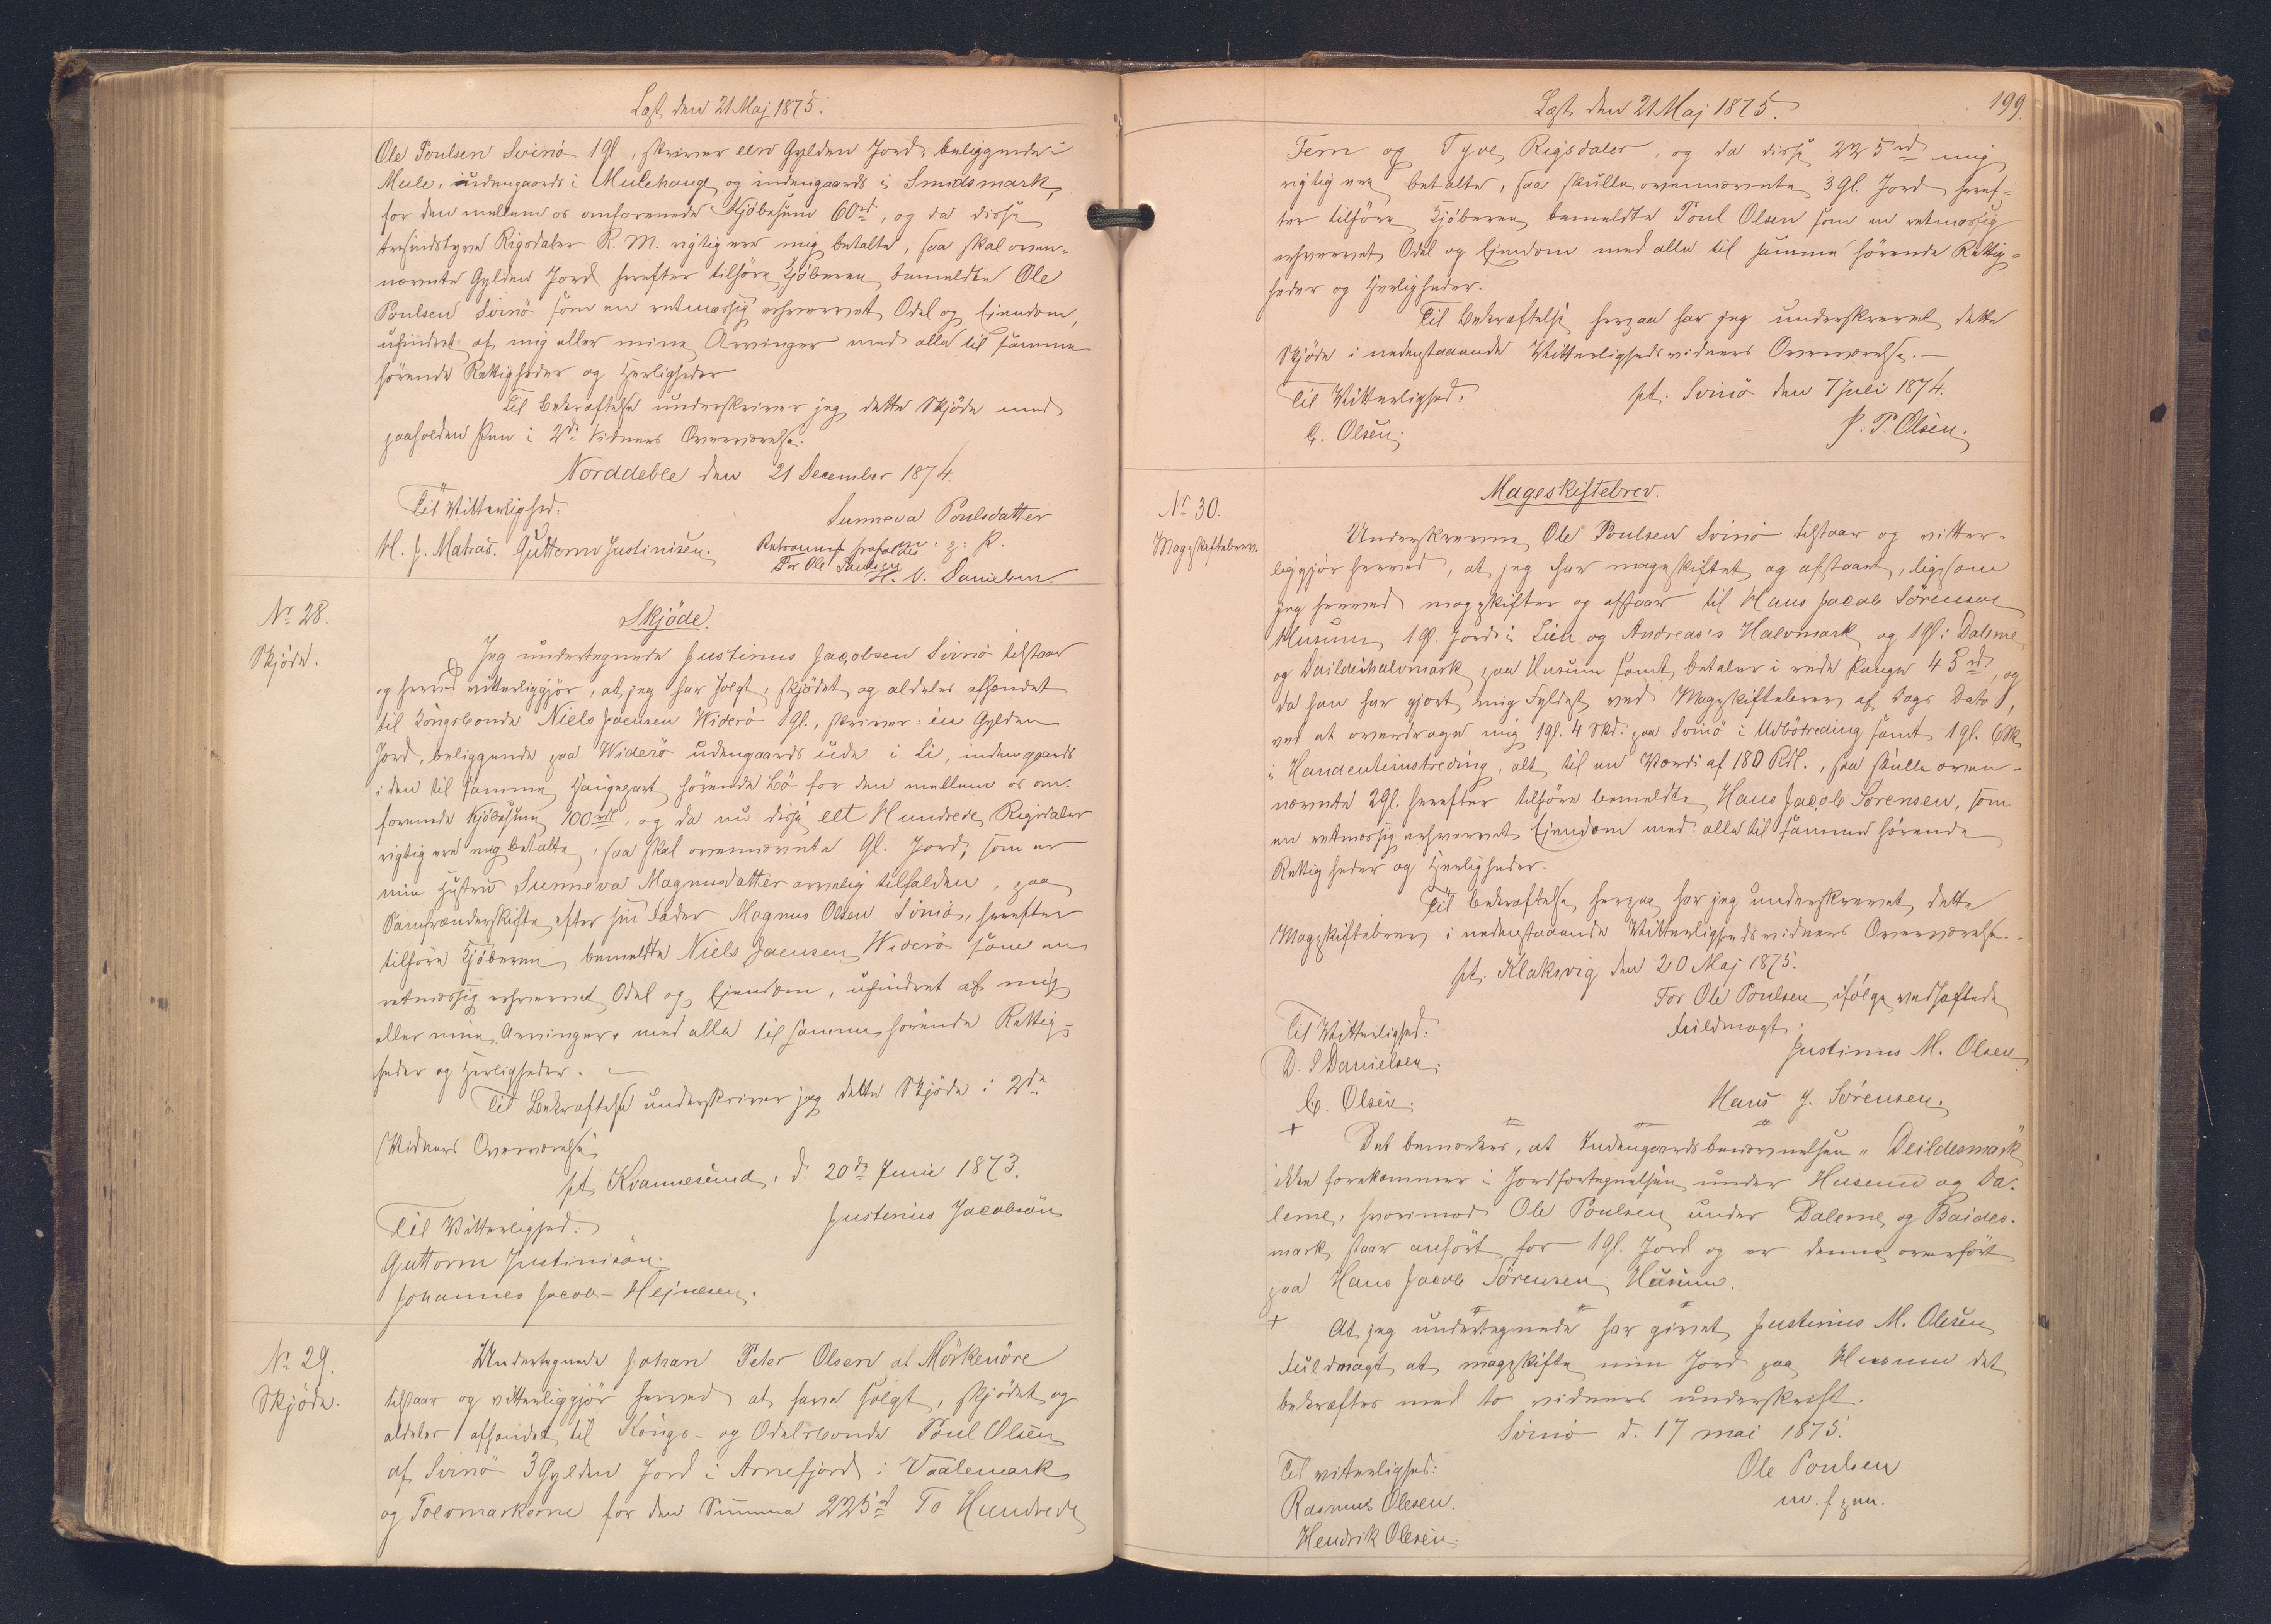 Læst den 21 Maj 1875.
Ole Poulsen Svinö 1 Gl., skriver een Gylden Jord, beliggende i
Mule, udengaards i Mulehauge og indengaards i Smidsmark,
for den mellem os omforenede Kjöbesum 60 rd, og da disse
tresindstyve Rigsdaler R. M. rigtig ere mig betalte, saa skal oven-
nævnte Gylden Jord herefter tilhöre Kjöberen bemeldte Ole
Poulsen Svinö som en retmæssig erhvervet Odel og Eiendom,
uhindret af mig eller mine Arvinger med alle til samme
hörende Rettigheder og Herligheder
Til Bekræftelse underskriver jeg dette Skjöde med
paaholden Pen i 2de Vidners Overværelse.
Norddeble den 21 December 1874.
Til Vitterlighed.
Sunneva Poulsdatter
H. J. Matras. Guttorm Justinisen.
m: p: P.
For Ole Poulsen
H. N. Danielsen.
Nr 28.
Skjöde.
Skjöde.
Jeg undertegnede Justinus Jacobsen Svinö tilstaar
og herved vitterliggjör, at jeg har solgt, skjödet og aldeles afhændet
til Kongsbonde Niels Joensen Widerö 1 Gl., skriver: én Gylden
Jord, beliggende paa Widerö udengaards ude i Li, indengaards
i den til samme Haugepart hörende Bö for den mellem os om-
forenede Kjöbesum 100 rdl, og da nu disse ett Hundrede Rigsdaler
rigtig ere mig betalte, saa skal ovennævnte Gl. Jord, som er
min Hustru Sunneva Magnusdatter arvelig tilfalden, paa
Samfrænderskifte efter sin Fader Magnus Olsen Svinö, herefter
tilhöre Kjöberen bemeldte Niels Joensen Widerö som en
retmæssig erhvervet Odel og Eiendom, uhindret af mig
eller mine Arvinger, med alle til samme hörende Rettig-
heder og Herligheder. –
Til Bekræftelse underskriver jeg dette Skjöde i 2de
Widners Overværelse
pt. Kvannesund, d. 20de Junie 1873.
Til Witterlighed.
Justinus Jacobsön
Guttorm Justinisön
Johannes Jacob Hejnesen.
Nr 29.
Skjöde.
Undertegnede Johan Peter Olsen af Mörkenöre
tilstaar og vitterliggjör herved at have solgt, skjödet og
aldeles afhændet til Kongs- og Odelsbonde Poul Olsen
af Svinö 3 Gylden Jord i Arnefjord i Vaalemark
og Toevmarkerne for den Summa 225 rd To Hundrede
Læst den 21 Maj 1875.
199.
Fem og Tyve Rigsdaler, og da disse 225 rd mig
rigtig ere betalte, saa skulle ovennævnte 3 Gl. Jord heref-
ter tilhöre Kjöberen bemeldte Poul Olsen som en retmæssig
erhvervet Odel og Ejendom med alle til samme hörende Rettig-
heder og Herligheder.
Til Bekræftelse herpaa har jeg underskrevet dette
Skjöde i nedenstaaende Vitterlighedsvidners Overværelse. –
Til Vitterlighed.
pt. Svinö den 7 Juli 1874.
C. Olsen.
J. P. Olsen.
Nr 30.
Mageskiftebrev.
Mageskiftebrev.
Underskrevne Ole Poulsen Svinö tilstaar og vitter-
liggjör herved, at jeg har mageskiftet og afstaaet, ligesom
jeg herved mageskifter og afstaar til Hans Jacob Sörensen
Husum 1 Gl. Jord i Lien og Andreas's Halvmark og 1 Gl. i Dalerne
og Daildeshalvmark paa Husum samt betaler i rede Penge 45 rd, og
da han har gjort mig Fyldest ved Mageskiftebrev af Dags Dato,
ved at overdrage mig 1 Gl. 4 Skd. paa Svinö i Udbötreding samt 1 Gl. 6 Sk
i Handenteinstreding, alt til en Værdi af 180 Rdl., saa skulle oven-
nævnte 2 Gl. herefter tilhöre bemeldte Hans Jacob Sörensen, som
en retmæssig erhvervet Ejendom med alle til samme hörende
Rettigheder og Herligheder.
Til Bekræftelse herpaa har jeg underskrevet dette
Mageskiftebrev i nedenstaaende Vitterlighedsvidners Overværelse.
pt. Klaksvig den 20 Maj 1875.
For Ole Poulsen ifölge vedheftede
Til Witterlighed:
Fuldmagt:
D. J Danielsen.
Justinus M. Olsen
C. Olsen.
Hans J. Sörensen.
+ Det bemærkes, at Indengaardsbenævnelsen "Deildesmark
ikke forekommer i Jordfortegnelsen under Husum og Da-
lerne, hvorimod Ole Poulsen under Dalerne og Baides-
mark staar anfört for 1 Gl. Jord og er denne overfört
paa Hans Jacob Sörensen Husum.
+ At jeg undertegnede har givet Justinus M. Olesen
Fuldmagt at mageskifte min Jord paa Husum det
bekræftes med to vidners underskrift.
Svinö d. 17 mai 1875.
Til vitterlighed:
Ole Poulsen
Rasmus Olesen.
m. f. pen.
Hendrik Olesen.